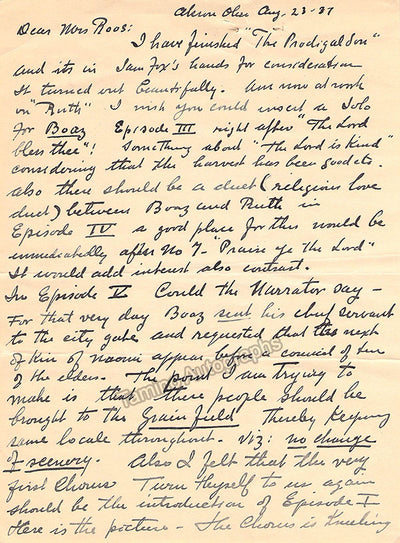 Akron Ohio Aug. 23-37
Dear Mrs Roos:
I have finished "The Prodigal Son"
and its in Sam Fox's hands for consideration
It turned out beautifully. Am now at work
on "Ruth" I wish you could insert a Solo
for Boaz Episode III right after "The Lord
bless thee"! Something about "The Lord is Kind"
considering that the harvest has been good etc.
also there should be a duet (religious love
duet) between Boaz and Ruth in
Episode IV a good place for this would be
immediately after No 7- "Praise ye The Lord"
It would add interest also contrast.
In Episode V Could the Narrator say -
For that very day Boaz sent his chief servant
to the city gate and requested that the next
of Kin of Naomi appear before a council of ten
of the elders. The point I am trying to
make is that these people should be
brought to the Grain field Thereby Keeping
same locale throughout. viz: no change
of scenery. Also I felt that the very
first Chorus Turn Thyself to us again
should be the introduction of Episode I
Here is the picture - The Chorus is Kneeling
taminoAutographs